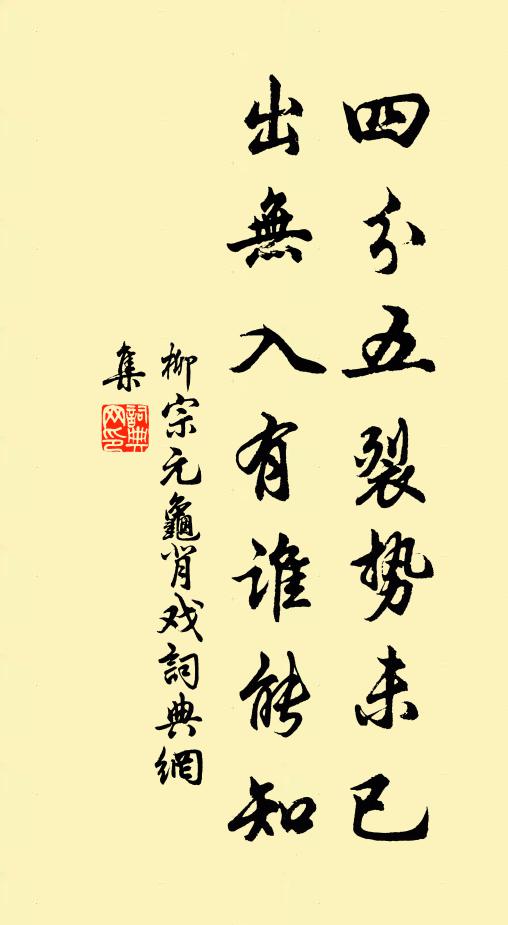 四分五裂势未已
出無入有谁能知
柳宗元龜背戏詞典網
集
詞典网印